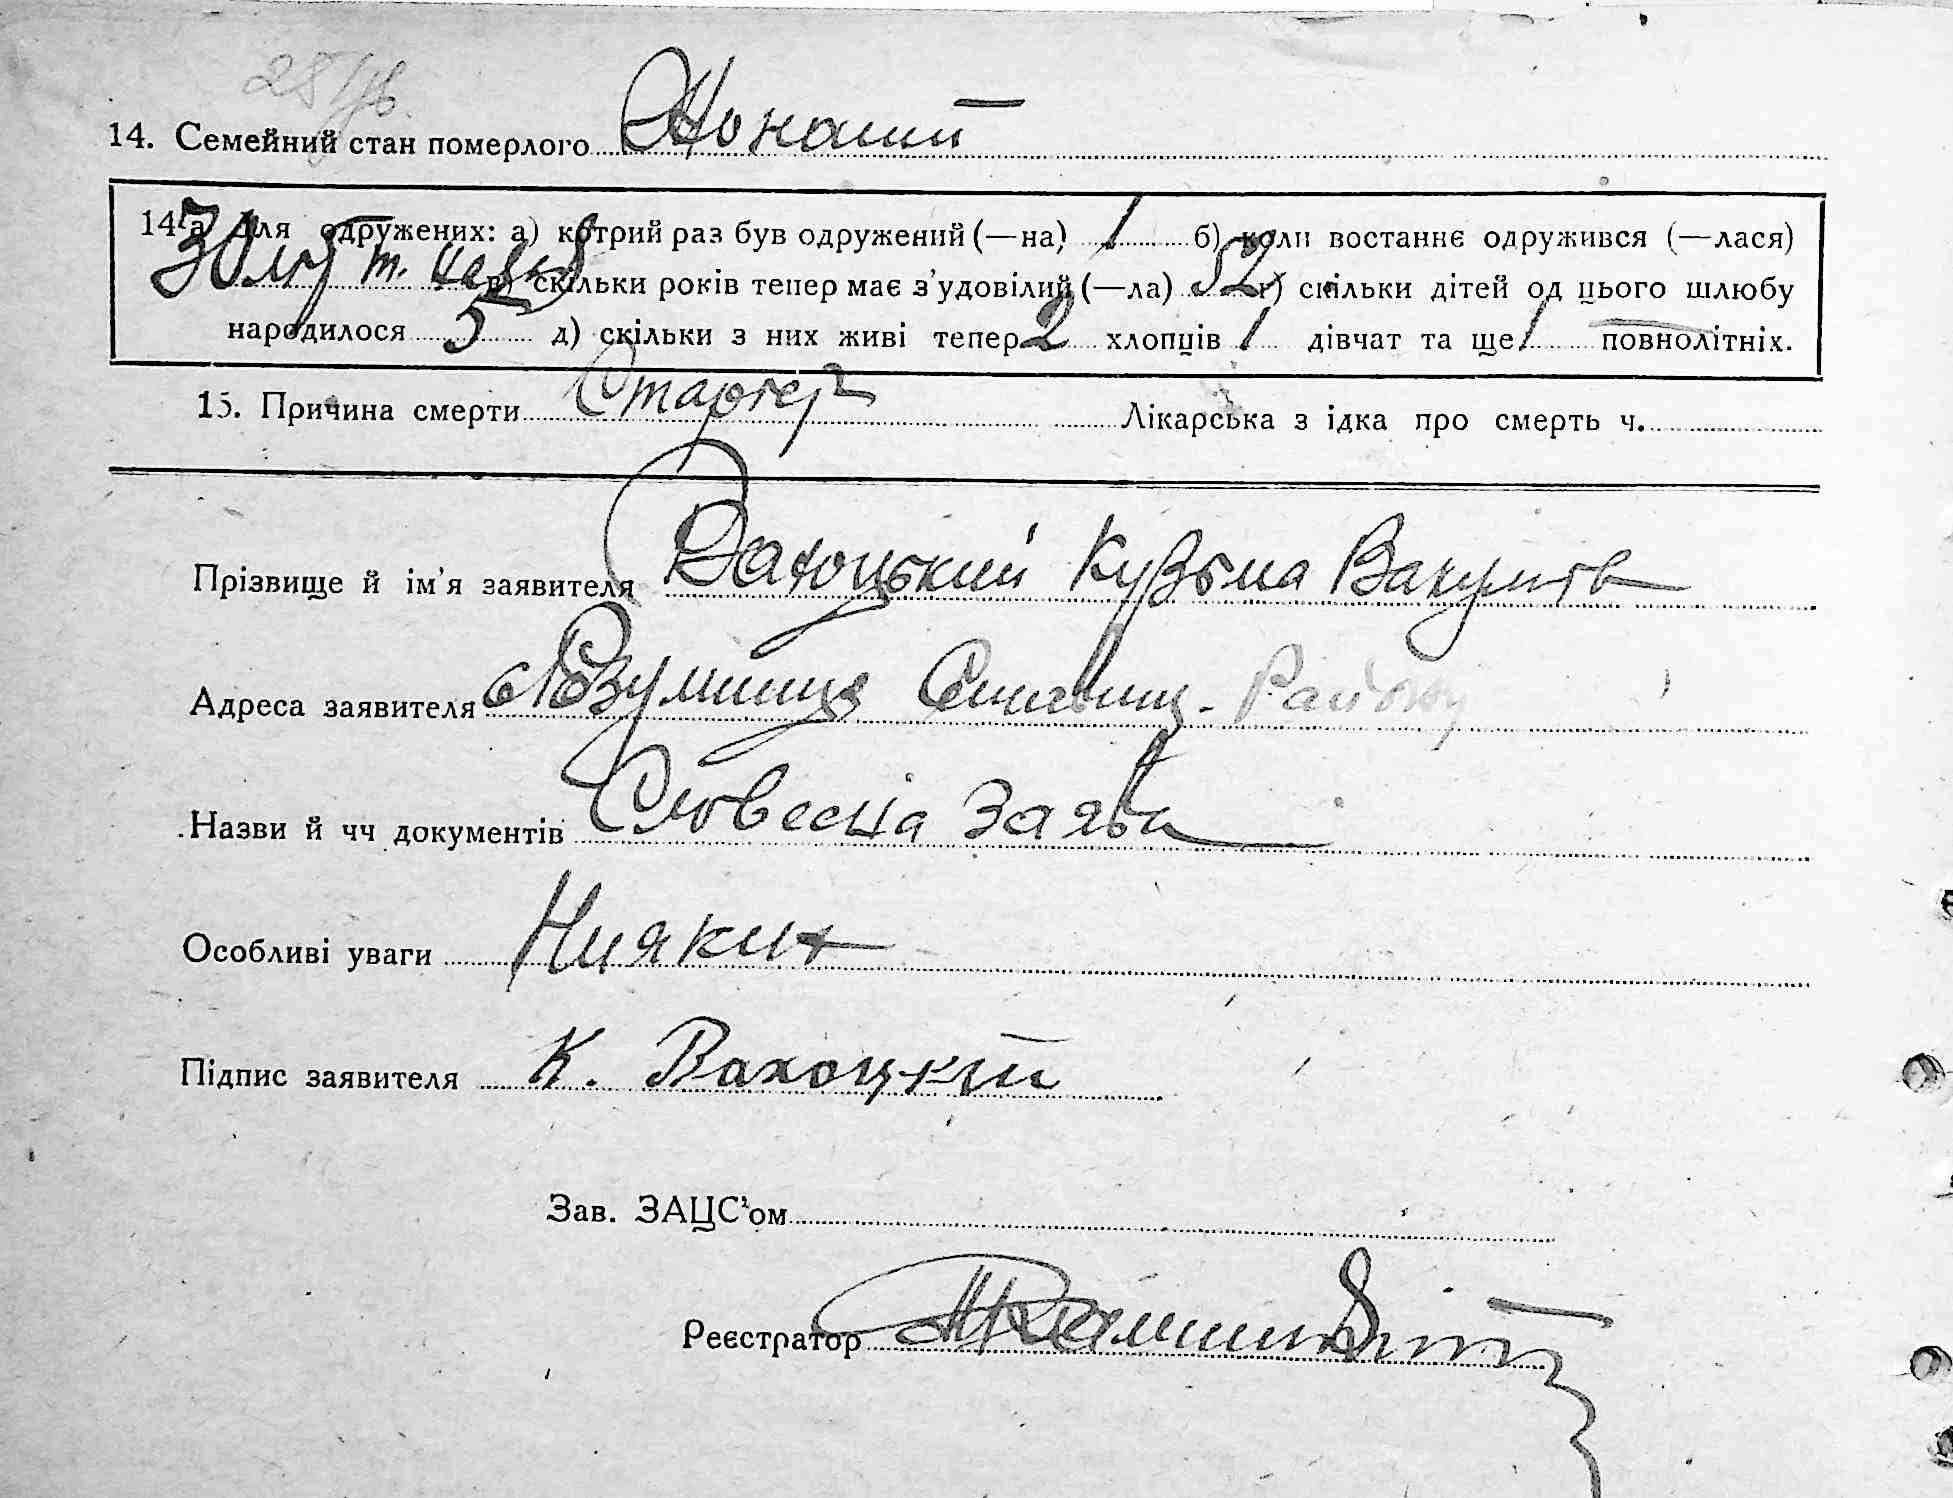 14. Семейний стан померлого Жонатий
14 а Для одружених: а) котрий раз був одружений (—на) 1 б) коли востаннє одружився (—лася)
30 в) скільки років тепер має з'удовілий (—ла) 52 г) скільки дітей од цього шлюбу
народилося 5 д) скільки з них живі тепер 2 хлопців 1 дівчат та ще 1 повнолітніх.
15. Причина смерти Лікарська з ідка про смерть ч.
Прізвище й ім'я заявителя Вахоцький Кузьма
Адреса заявителя Району
Назви й чч документів Словесна Заява
Особливі уваги Нияких
Підпис заявителя К. Вахоцкий
Зав. ЗАЦС'ом
Реєстратор